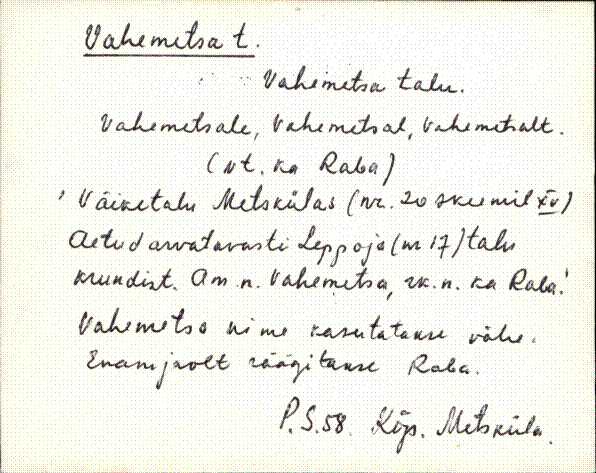 Vahemetsa t.
Vahemetsa talu.
Vahemetsale, Vahemetsal, Vahemetsalt.
(vt. ka Raba)
Väiketalu Metskülas (nr. 20 skeemil XV)
Aetud arvatavasti Leppoja (nr 17) talu
krundist. Am. n. Vahemetsa, rk. n. ka Raba.
Vahemetsa nime kasutatakse vähe.
Enamjaolt räägitakse Raba.
P.S.58. Kõp. Metsküla.